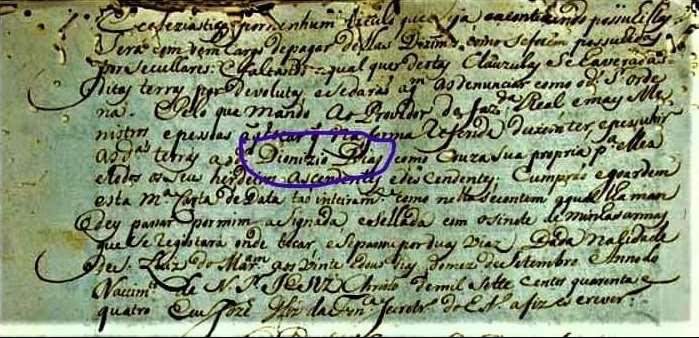 Ecclesiastica, por nenhum titulo que seja acontecendo possuillas
será com o encargo de pagar dellas Dizimos como se forem possuidas
por seccullares. E faltando a qual quer destas Clauzulas se haveram as
ditas terras por devolutas e se daráo a q.m as denunciar como o d.o S.r orde
na. Pelo que mando ao Provedor da faz.da Real e mays Me
nistros e pessoas a q tocar q na forma referida deixem ter, e pessuhir
as d.as terras ao d.o Dionizio Dias, como Couza sua propria p.a elle
e todos os seu herdeiros ascendentes e descendentes. Cumprão e goardem
esta m.a Carta de Data tão inteiram.te como nella se contem a qual lha man
dey passar por mim asignada e sellada com o sinete de minhas armas
que se registará onde tocar e se passou por duas vias. Dada na Cidade
de S. Luiz do Mar.am aos vinte e dous dias do mez de Setembro Anno do
Nascim.to de N. Sr. JESUZ Christo de mil Sette centos quarenta e
quatro. E eu Jozé da Secretr.o do E.o a fiz escrever.